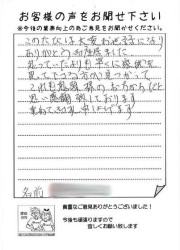 お客様の声をお聞せ下さい
※今後の業務向上の為ご意見をお聞かせください。
このたびは大変お世話になり
ありがとうございました
思っていたよりも早くに
見て下さる方が見つかって
これも皆様のおかげだと
感謝致しております
名前
貴重なご意見ありがとうございました!
今後も頑張りますので
宜しくお願い致します